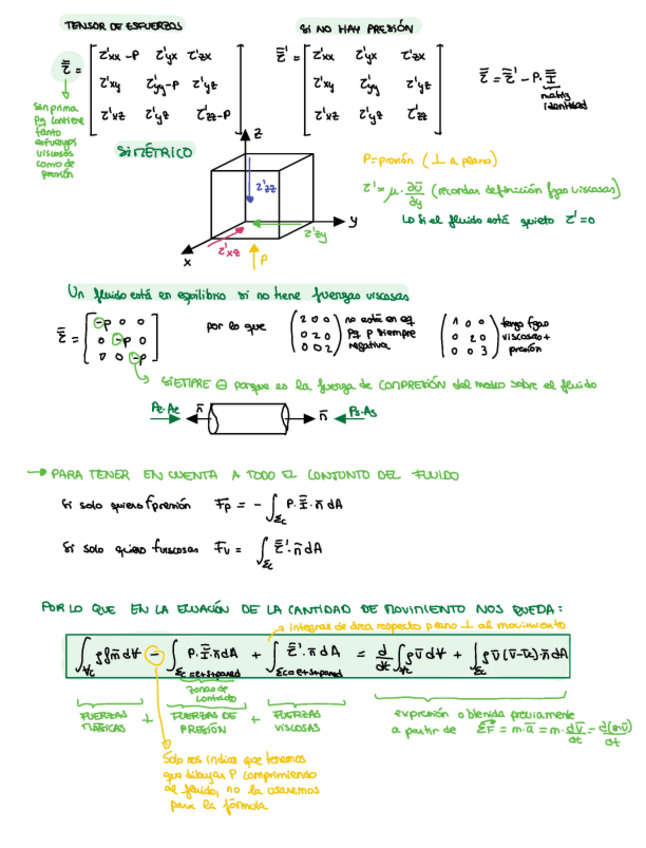 TENSOR DE ESFUERZOS
SI NO HAY PRESIÓN
τ̿ = [ τ'xx -P τ'yx τ'zx
τ'xy τ'yy-P τ'yz
τ'xz τ'yz τ'zz-P ]
τ̿' = [ τ'xx τ'yx τ'zx
τ'xy τ'yy τ'yz
τ'xz τ'yz τ'zz ]
τ̿ = τ̿' - P. I̿
matriz
identidad
sin prima
pq contiene
tanto
esfuerzos
viscosos
como de
presión
SIMÉTRICO
z
y
x
τ'zz
τ'zy
τ'xz
P
P=presión (⊥ a plano)
τ' = μ. ∂ū/∂y (recordar definición fzas viscosas)
Lo si el fluido está quieto τ'=0
Un fluido está en equilibrio si no tiene fuerzas viscosas
τ̿ = [ -P 0 0
0 -P 0
0 0 -P ]
por lo que
( 2 0 0
0 2 0
0 0 2 )
no está en eq
pq p siempre
negativa
( 1 0 0
0 2 0
0 0 3 )
tengo fzas
viscosas+
presión
SIEMPRE ⊖ porque es la fuerza de COMPRESIÓN del medio sobre el fluido
Pe.Ae n̄ n̄ Ps.As
→ PARA TENER EN CUENTA A TODO EL CONJUNTO DEL FLUIDO
Si solo quiero fpresión Fp = - ∫Σc P. I̿. n̄ dA
Si solo quiero fviscosas Fv = ∫Σc τ̿'. n̄ dA
POR LO QUE EN LA ECUACIÓN DE LA CANTIDAD DE MOVIMIENTO NOS QUEDA:
integral de área respecto plano ⊥ al movimiento
∫Vc ρf̄m dV - ∫Σc=e+s+pared P. I̿. n̄ dA + ∫Σc=e+s+pared τ̿'. n̄ dA = d/dt ∫Vc ρv̄ dV + ∫Σc ρv̄ (v̄-v̄c). n̄ dA
zonas de
contacto
FUERZAS
MÁSICAS
+
FUERZAS DE
PRESIÓN
+
FUERZAS
VISCOSAS
expresión obtenida previamente
a partir de ΣF̄ = m.ā = m. dv̄/dt = d(mv̄)/dt
Solo nos indica que tenemos
que dibujar P comprimiendo
al fluido, no la usaremos
para la fórmula